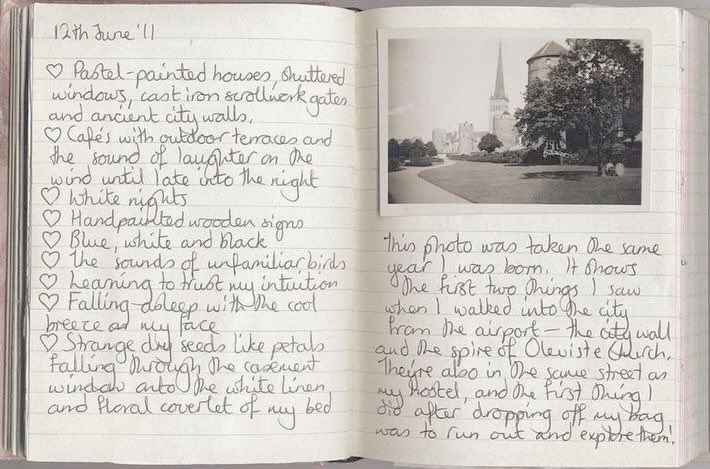 12th June '11
♡ Pastel-painted houses, shuttered
windows, cast iron scrollwork gates
and ancient city walls.
♡ Cafés with outdoor terraces and
the sound of laughter on the
wind until late into the night
♡ White nights
♡ Handpainted wooden signs
♡ Blue, white and black
♡ The sounds of unfamiliar birds
♡ Learning to trust my intuition
♡ Falling asleep with the cool
breeze on my face
♡ Strange dry seeds like petals
falling through the casement
window onto the white linen
and floral coverlet of my bed
This photo was taken the same
year I was born. It shows
the first two things I saw
when I walked into the city
from the airport – the city wall
and the spire of Oleviste Church.
They're also in the same street as
my hostel, and the first thing I
did after dropping off my bag
was to run out and explore them!